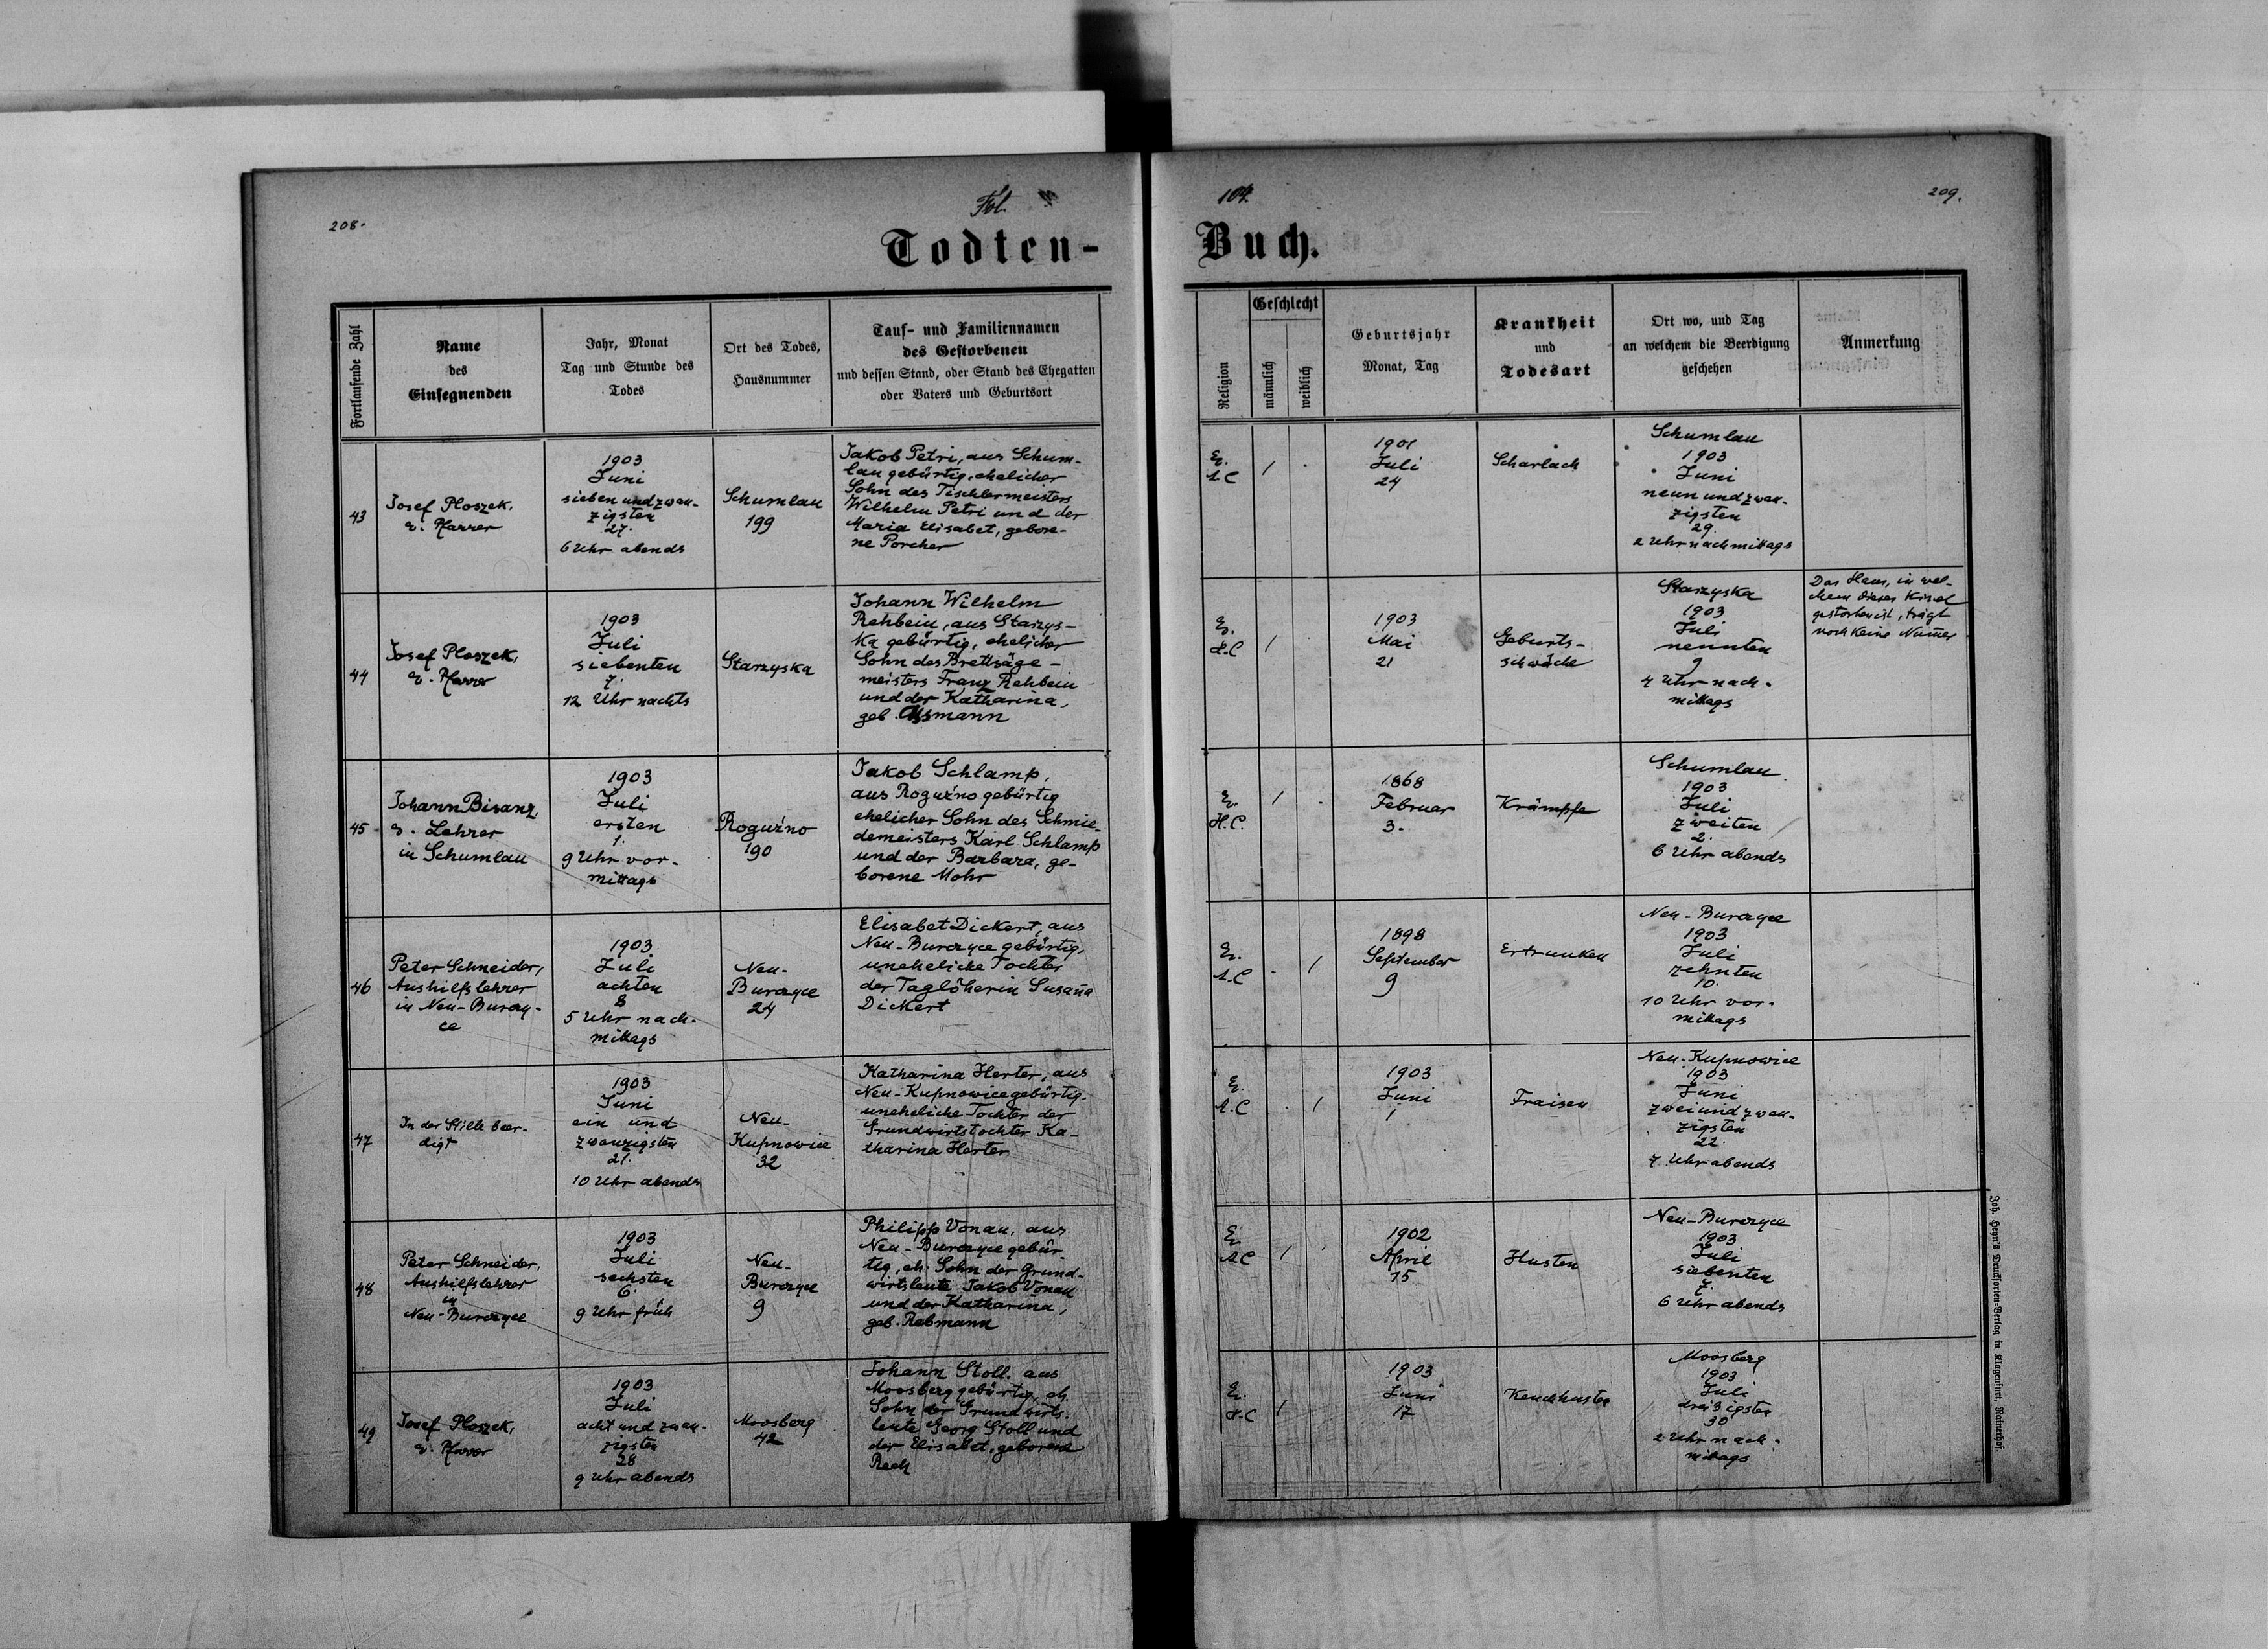 208.
Fol.
104.
209.
Todten-
Buch.
Fortlaufende Zahl
Name
des
Einsegnenden
Jahr, Monat
Tag und Stunde des
Todes
Ort des Todes,
Hausnummer
Tauf- und Familiennamen
des Gestorbenen
und dessen Stand, oder Stand des Ehegatten
oder Vaters und Geburtsort
Religion
Geschlecht
männlich
weiblich
Geburtsjahr
Monat, Tag
Krankheit
und
Todesart
Ort wo, und Tag
an welchem die Beerdigung
geschehen
Anmerkung
43
Josef Ploszek,
ev. Pfarrer
1903
Juni
sieben und zwan-
zigsten
27.
6 Uhr abends
Schumlau
199
Jakob Petri, aus Schum-
lau gebürtig, ehelicher
Sohn des Tischlermeisters
Wilhelm Petri und der
Maria Elisabet, gebore-
ne Porcher
Ev.
A.C
/
1901
Juli
24
Scharlach
Schumlau
1903
Juni
neun und zwan-
zigsten
29.
2 Uhr nachmittags
44
Josef Ploszek,
ev. Pfarrer
1903
Juli
siebenten
7.
12 Uhr nachts
Starzyska
Johann Wilhelm
Rehbein, aus Starzys-
ka gebürtig, ehelicher
Sohn des Brettsäge-
meisters Franz Rehbein
und der Katharina,
geb. Assmann
Ev.
H.C
/
1903
Mai
21
Geburts-
schwäche
Starzyska
1903
Juli
neunten
9
4 Uhr nach-
mittags
Das Haus, in wel-
chem dieses Kind
gestorben ist, trägt
noch keine Numer
45
Johann Bisanz,
ev. Lehrer
in Schumlau
1903
Juli
ersten
1.
9 Uhr vor-
mittags
Roguźno
190
Jakob Schlamp,
aus Roguźno gebürtig
ehelicher Sohn des Schmie-
demeisters Karl Schlamp
und der Barbara, ge-
borene Mohr
Ev.
H.C.
/
1868
Februar
3.
Krämpfe
Schumlau
1903
Juli
zweiten
2.
6 Uhr abends
46
Peter Schneider,
Aushilfslehrer
in Neu-Burczy-
ce
1903
Juli
achten
8
5 Uhr nach-
mittags
Neu-
Burczyce
24
Elisabet Dickert, aus
Neu-Burczyce gebürtig,
uneheliche Tochter
der Taglöherin Susaña
Dickert
Ev.
A.C
/
1898
September
9
Ertrunken
Neu-Burczyce
1903
Juli
zehnten
10.
10 Uhr vor-
mittags
47
In der Stille beer-
digt
1903
Juni
ein und
zwanzigsten
21.
10 Uhr abends
Neu-
Kupnowice
32
Katharina Herter, aus
Neu-Kupnowice gebürtig.
uneheliche Tochter der
Grundwirtstochter Ka-
tharina Herter
Ev.
A.C
/
1903
Juni
1
Fraisen
Neu-Kupnowice
1903
Juni
zwei und zwan-
zigsten
22.
7 Uhr abends
48
Peter Schneider,
Aushilfslehrer
in
Neu-Burczyce
1903
Juli
sechsten
6.
9 Uhr früh
Neu-
Burczyce
9
Philipp Vonau, aus
Neu-Burczyce gebür-
tig, eh. Sohn der Grund-
wirtsleute Jakob Vonau
und der Katharina,
geb. Rebmann
Ev.
A.C
/
1902
April
15
Husten
Neu-Burczyce
1903
Juli
siebenten
7.
6 Uhr abends
49
Josef Ploszek,
ev. Pfarrer
1903
Juli
acht und zwan-
zigsten
28
9 Uhr abends
Moosberg
42
Johann Stoll, aus
Moosberg gebürtig, eh.
Sohn der Grundwirts-
leute Georg Stoll und
der Elisabet, geborene
Rech
Ev.
H.C
/
1903
Juni
17
Keuchhusten
Moosberg
1903
Juli
dreißigsten
30
2 Uhr nach-
mittags
Joh. Heyn's Drucksorten-Verlag in Klagenfurt, Rainerhof.